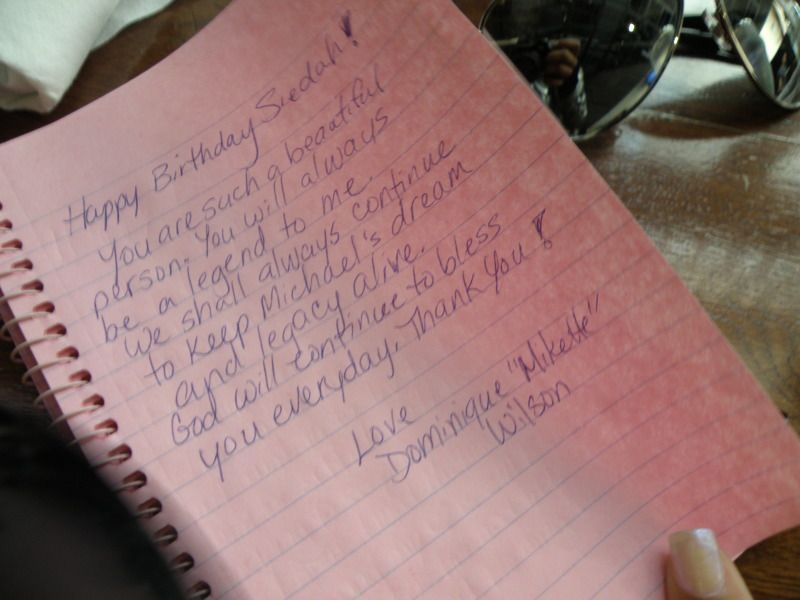 Happy Birthday Siedah!
You are such a beautiful
person. You will always
be a legend to me.
We shall always continue
to keep Michael's dream
and legacy alive.
God will continue to bless
you everyday. Thank You!
Love
Dominique "Mikette"
Wilson